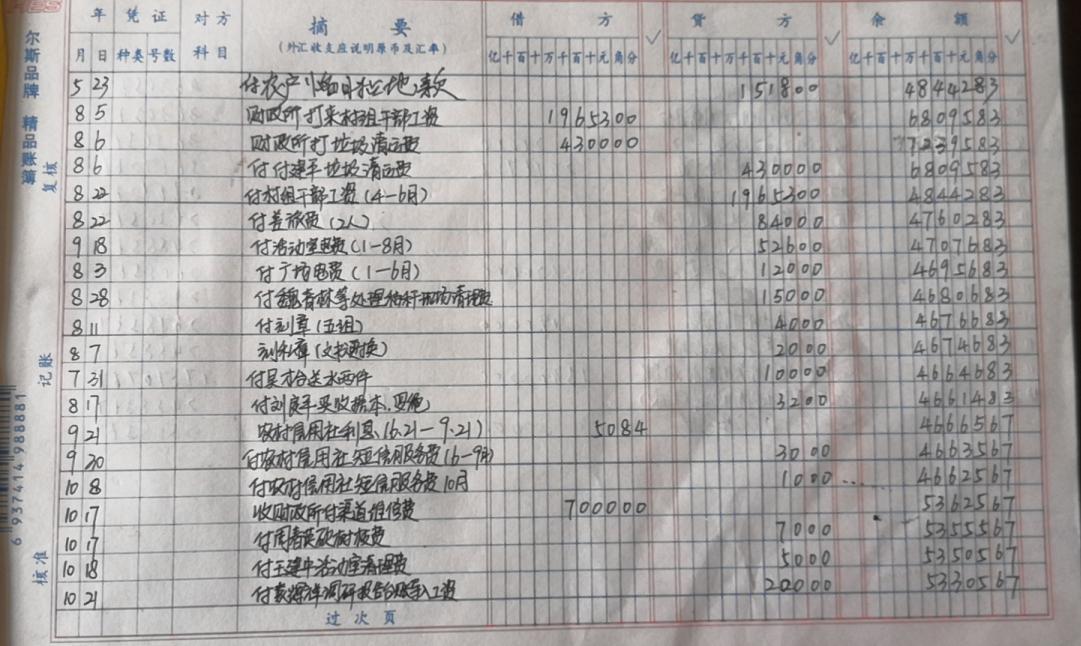 年 凭证 对方 摘要 借方 贷方 余额
月 日 种类 号数 科目 (外汇收支应说明原币及汇率) 亿千百十万千百十元角分 亿千百十万千百十元角分 亿千百十万千百十元角分
5 23 付农户 地款 151800 4844283
8 5 财政所打来村组干部工资 1965300 6809583
8 6 财政所打垃圾清运费 430000 7239583
8 6 付付建平垃圾清运费 430000 6809583
8 22 付村组干部工资(4-6月) 1965300 4844283
8 22 付差旅费(2人) 84000 4760283
9 18 付活动室电费(1-8月) 52600 4707683
8 3 付广场电费(1-6月) 12000 4695683
8 28 付魏春林等处理秸秆现场清理费 15000 4680683
8 11 付刘章(五组) 4000 4676683
8 7 刘章(更换) 2000 4674683
7 31 付吴 送水两件 10000 4664683
8 17 付刘庭平买收据本、 3200 4661483
9 21 农村信用社利息(6.21-9.21) 5084 4666567
9 20 付农村信用社短信服务费(6-9月) 3000 4663567
10 8 付农村信用社短信服务费10月 1000 4662567
10 17 收财政所付渠道维修费 700000 5362567
10 17 付周春英砍树枝费 7000 5355567
10 18 付王建平活动室清理费 5000 5350567
10 21 付袁 调研报告 工资 20000 5330567
过次页
尔斯品牌 精品账簿
复核
记账
核准
6 937414 988881